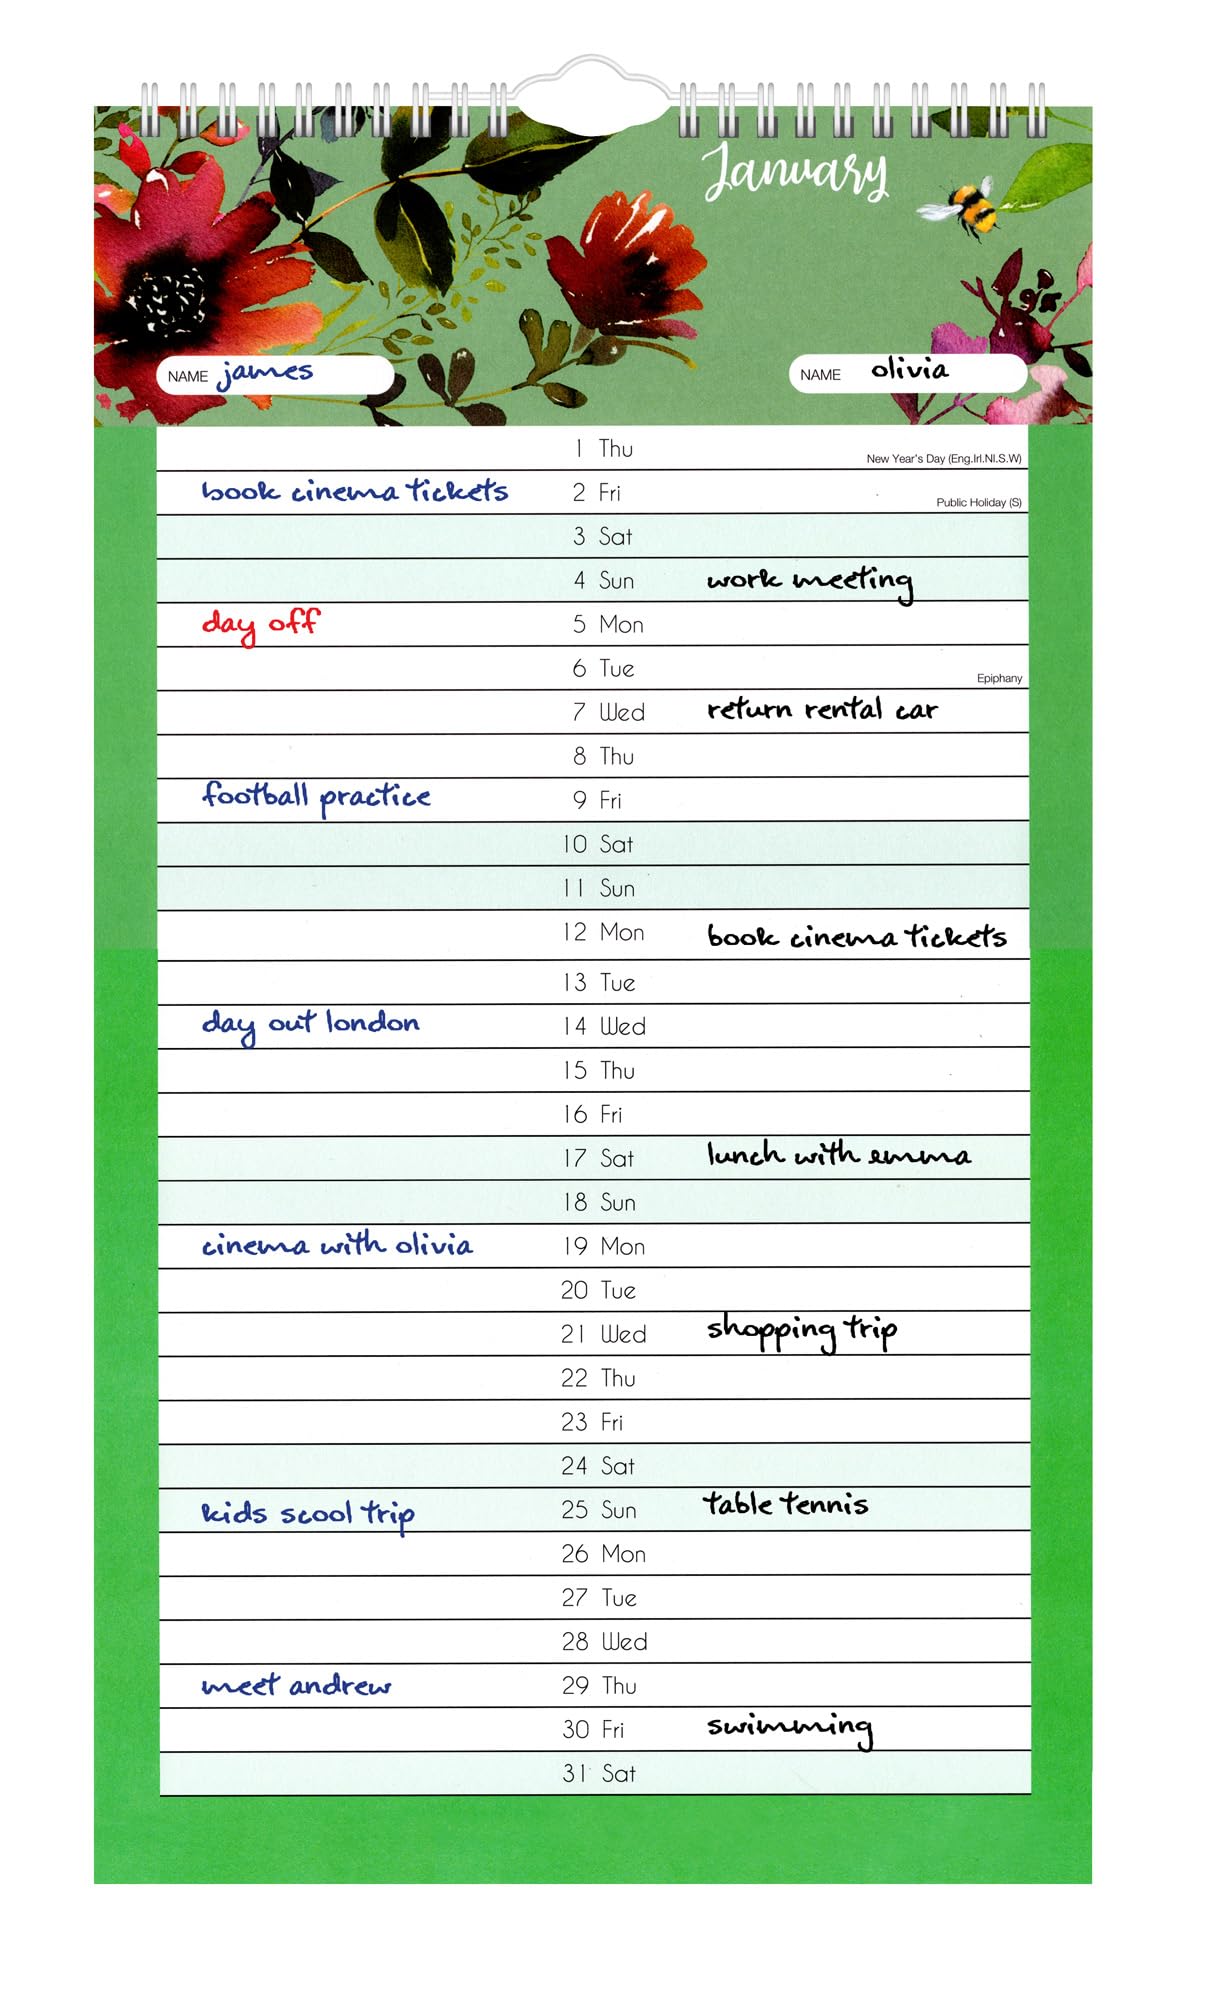 January
NAME james
NAME olivia
1 Thu New Year's Day (Eng.Irl.NI.S.W)
book cinema tickets 2 Fri Public Holiday (S)
3 Sat
4 Sun work meeting
day off 5 Mon
6 Tue Epiphany
7 Wed return rental car
8 Thu
football practice 9 Fri
10 Sat
11 Sun
12 Mon book cinema tickets
13 Tue
day out london 14 Wed
15 Thu
16 Fri
17 Sat lunch with emma
18 Sun
cinema with olivia 19 Mon
20 Tue
21 Wed shopping trip
22 Thu
23 Fri
24 Sat
kids scool trip 25 Sun table tennis
26 Mon
27 Tue
28 Wed
meet andrew 29 Thu
30 Fri swimming
31 Sat